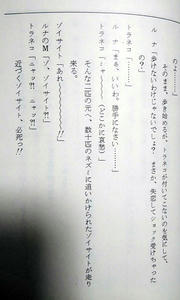 の…――」
　トのまま、歩き始めるが、トラネコが付いてこないのを気にして、
ルナ「歩けないわけじゃないでしょ？　まさか、失恋してショック受けちゃった
　の？」
トラネコ「……」
ルナ「まぁ、いいわ。勝手になさい……」
トラネコ「ミャ～～（どこかに哀愁）」
　そんな二匹の元へ、数十匹のネズミに追いかけられたゾイサイトが走り
来る。
ゾイサイト「あれ～～～～!!」
ルナのM「ゾ、ゾイサイト?!」
トラネコ「ニャッ?!　ニャッ?!」
　近づくゾイサイト、必死っ!!